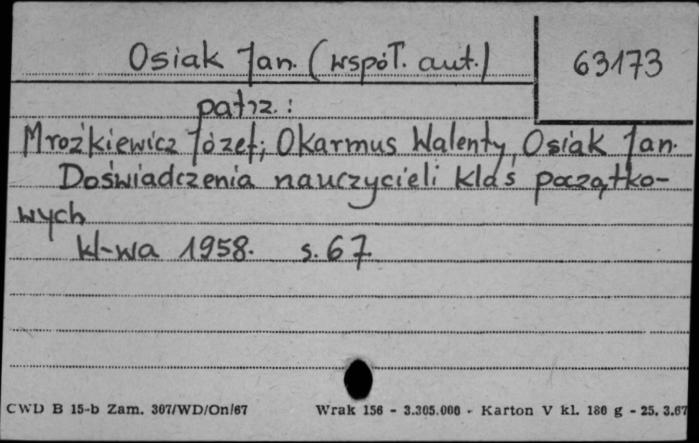 Osiak Jan. (współ. aut.)
63173
patrz.:
Mroźkiewicz Józef; Okarmus Walenty, Osiak Jan.
Doświadczenia nauczycieli klas początko-
wych
W-wa 1958. s. 67
CWD B 15-b Zam. 307/WD/On/67 Wrak 156 - 3.305.000 - Karton V kl. 180 g - 25. 3.67